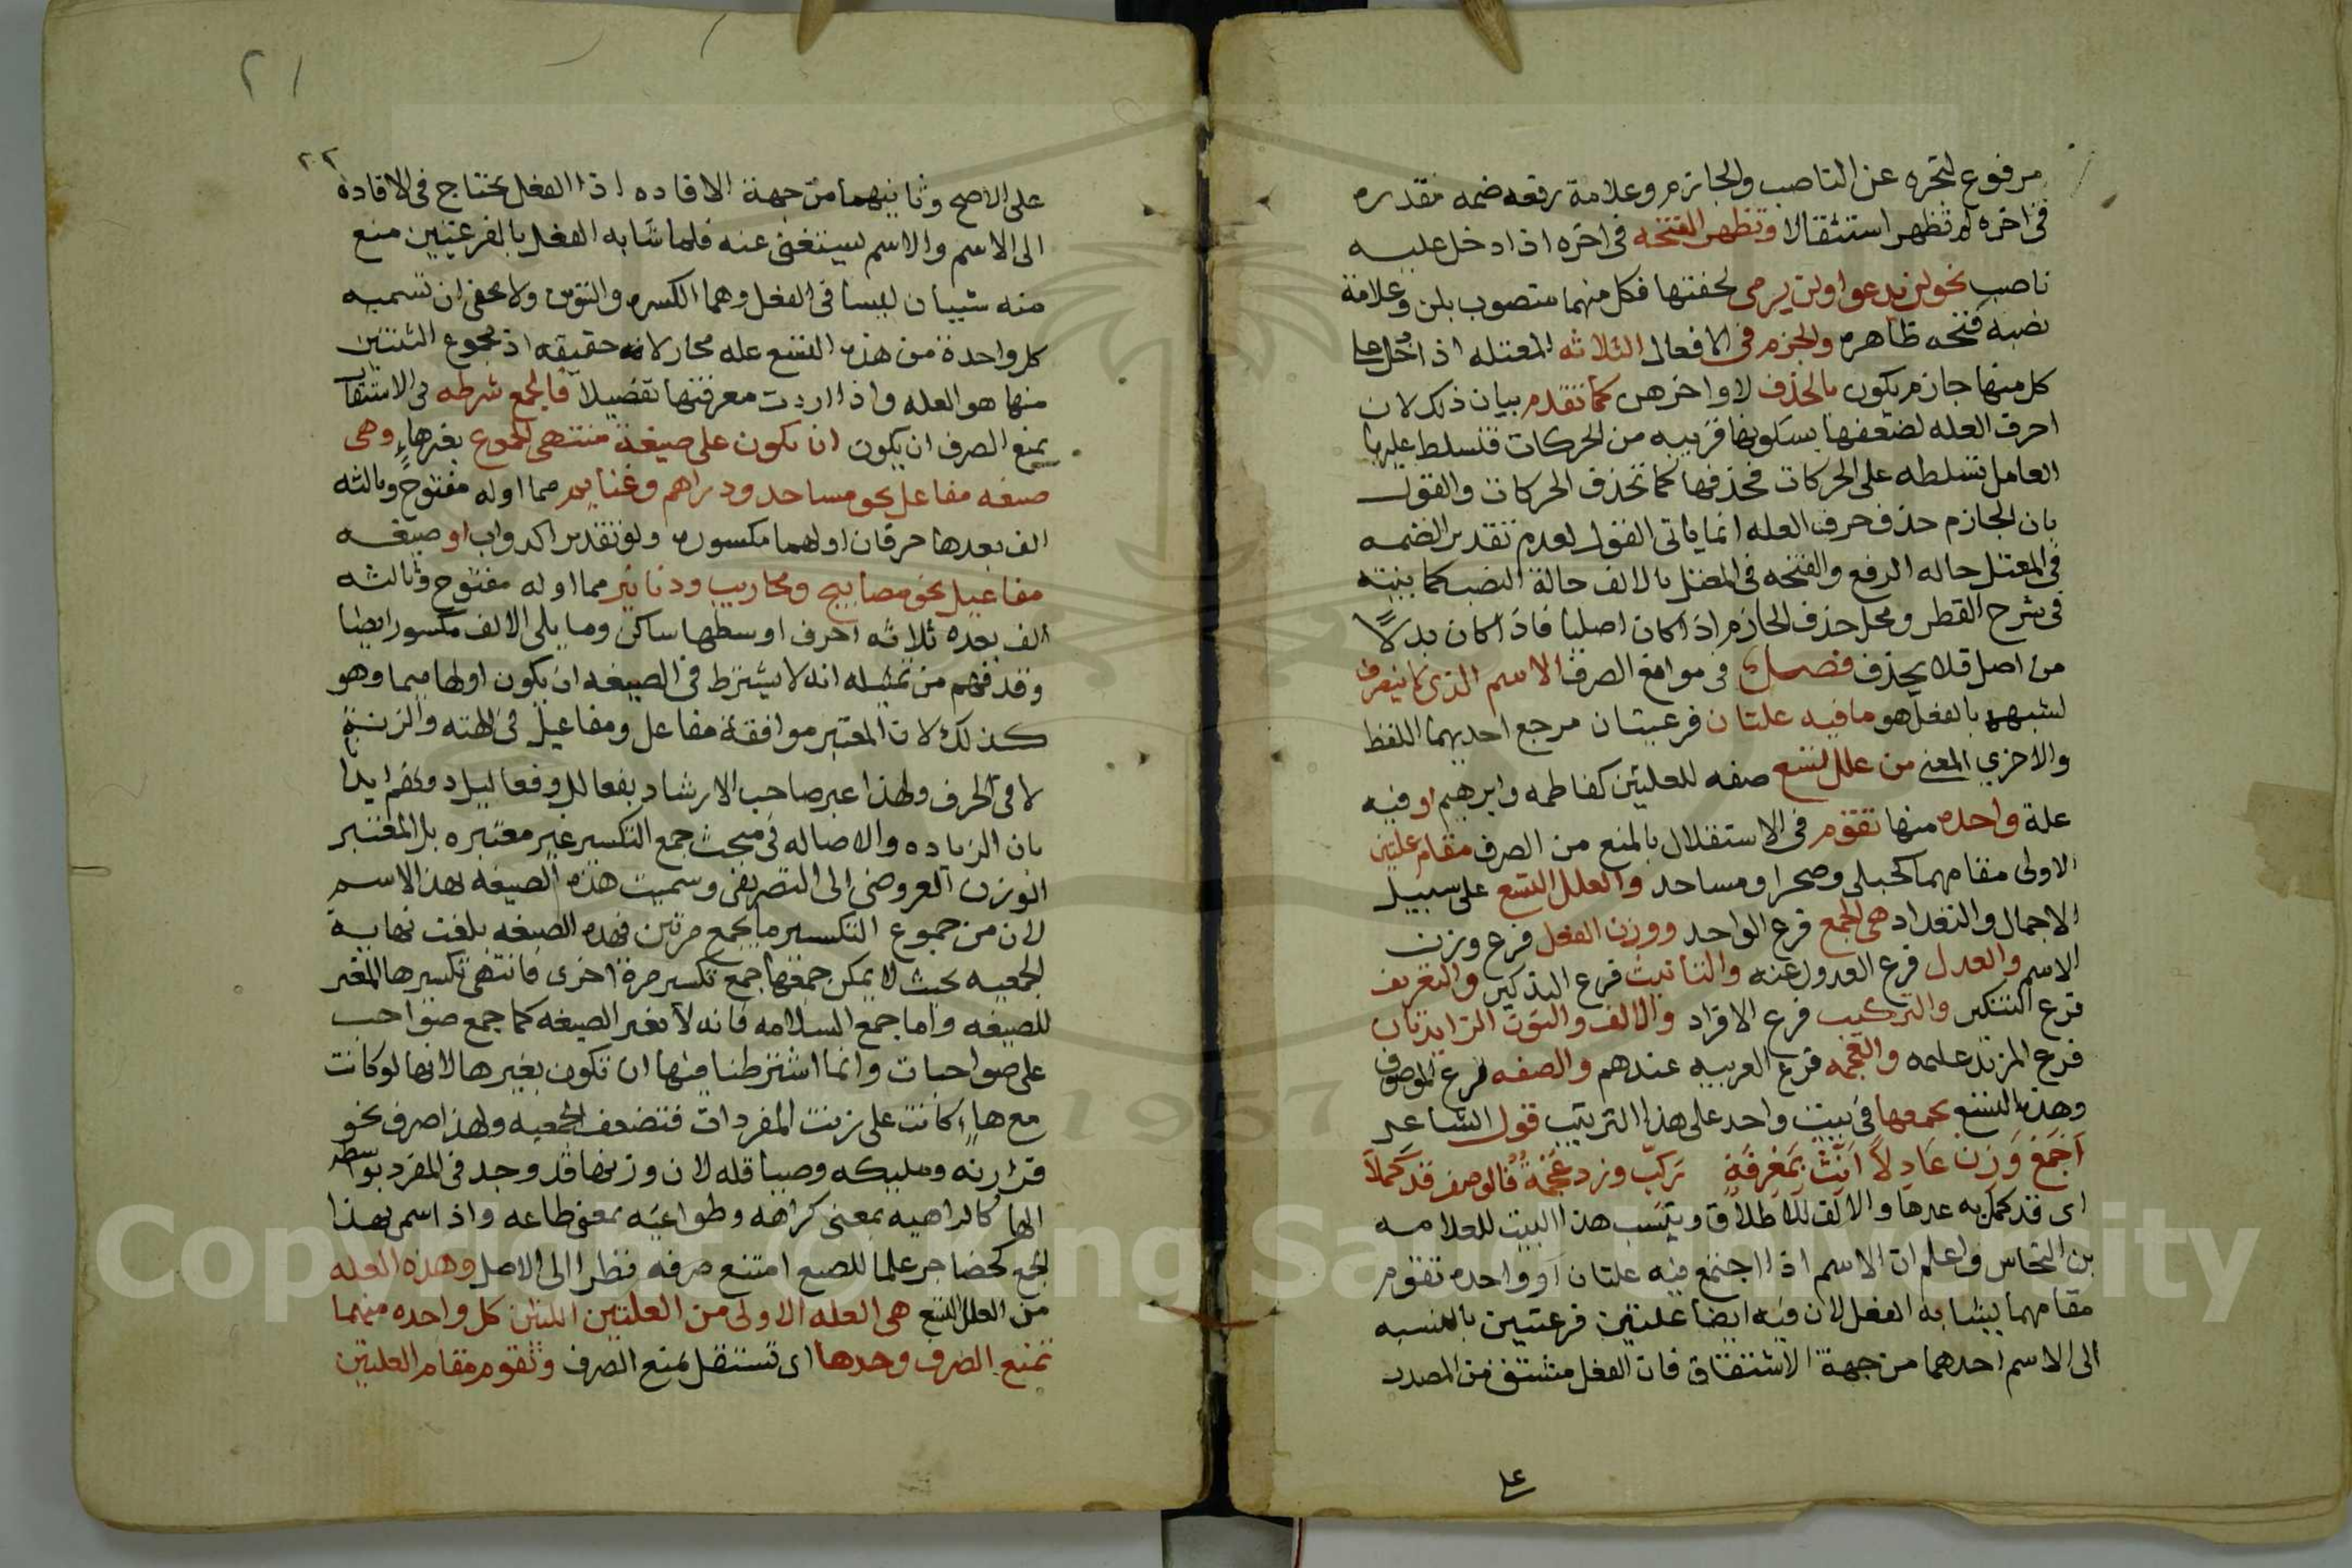 مرفوع لتجره عن الناصب والجازم وعلامة رفعه ضمه مقدره
فى اخره لم تظهر استثقالا وتظهر الفتحه فى اخره اذا دخل عليه
ناصب نحو لن يدعوا ولن يرمى لخفتها فكل منهما منصوب بلن وعلامة
نصبه فتحه ظاهره والجزم فى الافعال الثلاثه المعتله اذا دخل على
كل منها جازم يكون بالحذف لاواخرهن كما تقدم بيان ذلك لان
احرف العله لضعفها بسكونها قريبه من الحركات فتسلط عليها
العامل تسلطه على الحركات فحذفها كما تحذف الحركات والقول
بان الجازم حذف حرف العله انما ياتى الفول لعدم تقدير الضمه
فى المعتل حاله الرفع والفتحه فى المعتل بالالف حالة النصب كما بينته
فى شرح القطر ومحل حذف الجازم اذا كان اصليا فاذا كان بدلاً
من اصل فلا يحذف فصل فى موانع الصرف الاسم الذى لا ينصرف
لشبهه بالفعل هو ما فيه علتان فرعيتان مرجع احديهما اللفظ
والاخري المعنى من علل تسع صفه للعلتين كفاطمه وابرهيم او فيه
علة واحده منها تقوم فى الاستقلال بالمنع من الصرف مقام علتين
الاولى مقامهما كحبلى وصحرا ومساحد والعلل التسع على سبيل
الاجمال والتعداد هى الجمع فرع الواحد ووزن الفعل فرع وزن
الاسم والعدل فرع العدول عنه والتانيث فرع التذكير والتعريف
فرع التنكير والتركيب فرع الافراد والالف والنون الزايدتان
فرع المزيد عليه والعجمه فرع العربيه عندهم والصفه فرع الموصوف
وهذه التسع يجمعها فى بيت واحد على هذا الترتيب قول الشاعر
اَجْمَعْ وَزِنْ عَادِلاً اَنِّثْ بِمَعْرِفَةٍ رَكِّبْ وزد عُجْمَةً فالوصف قد كَمُلاَ
اى قد كمل به عدها والالف للاطلاق وينسب هذا البيت للعلامه
بن النحاس واعلم ان الاسم اذا اجتمع فيه علتان او واحده تقوم
مقامهما يشابه الفعل لان فيه ايضا علتين فرعتين بالنسبه
الى الاسم احدهما من جهة الاشتقاق فان الفعل مشتق من المصدر
على
٢١
٢٢
على الاصح وثانيهما من جهة الافاده اذ الفعل يحتاج فى الافادة
الى الاسم والاسم يستغنى عنه فلما شابه الفعل بالفرعيتين منع
منه شييان ليسا فى الفعل وهما الكسره والتنوين ولا يخفى ان تسميه
كل واحدة من هذه التسع عله مجاز لا حقيقه اذ مجموع الثنتين
منها هو العله واذا اردت معرفتها تفصيلاً فالجمع شرطه فى الاستقلال
بمنع الصرف ان يكون ان يكون على صيغة منتهى الجموع بغيرهاءٍ وهى
صيغه مفاعل نحو مساحد ودراهم وغنايم مما اوله مفتوح وثالثه
الف بعدها حرفان اولهما مكسور ولو تقديرا كدواب او صيغه
مفاعيل نحو مصابيح ومحاريب ودنانير مما اوله مفتوح وثالثه
الف بعده ثلاثه احرف اوسطها ساكن وما يلى الالف مكسور ايضا
وقد فهم من تمثيله انه لا يشترط فى الصيغه ان يكون اولها ميما وهو
كذلك لان المعتبر موافقة مفاعل ومفاعيل فى الهئه والزنة
لا فى الحرف ولهذا عبر صاحب الارشاد بفعالل وفعاليل
بان الزياده والاصاله فى مبحث جمع التكسير غير معتبره بل المعتبر
الوزن العروضى الى التصريفى وسميت هذه الصيغه بهذا الاسم
لان من جموع التكسير ما يجمع مرتين فهذه الصيغه بلغت نهاية
الجمعيه بحيث لا يمكن جمعها جمع تكسير مرة اخرى فانتهى تكسيرها المغير
للصيغه واما جمع السلامه فانه لا يغير الصيغه كما جمع صواحب
على صواحبات وانما اشترطنا فيها ان تكون بغيرها لانها لو كانت
مع هاءٍ كانت على زنت المفردات فتضعف الجمعيه ولهذا صرف نحو
فرازنه ومليكه وصياقله لان وزنها قد وجد فى المفرد بواسطه
الها كالراهيه بمعنى كراهه وطواعيه بمعنى طاعه واذا سمى بهذا
الجمع كحضاجر علما للضبع امتنع صرفه نظرا الى الاصل وهذه العله
من العلل التسع هى العله الاولى من العلتين اللتين كل واحده منهما
تمنع الصرف وحدها اى تستقل بمنع الصرف وتقوم مقام العلتين
Copyright © King Saud University
1957